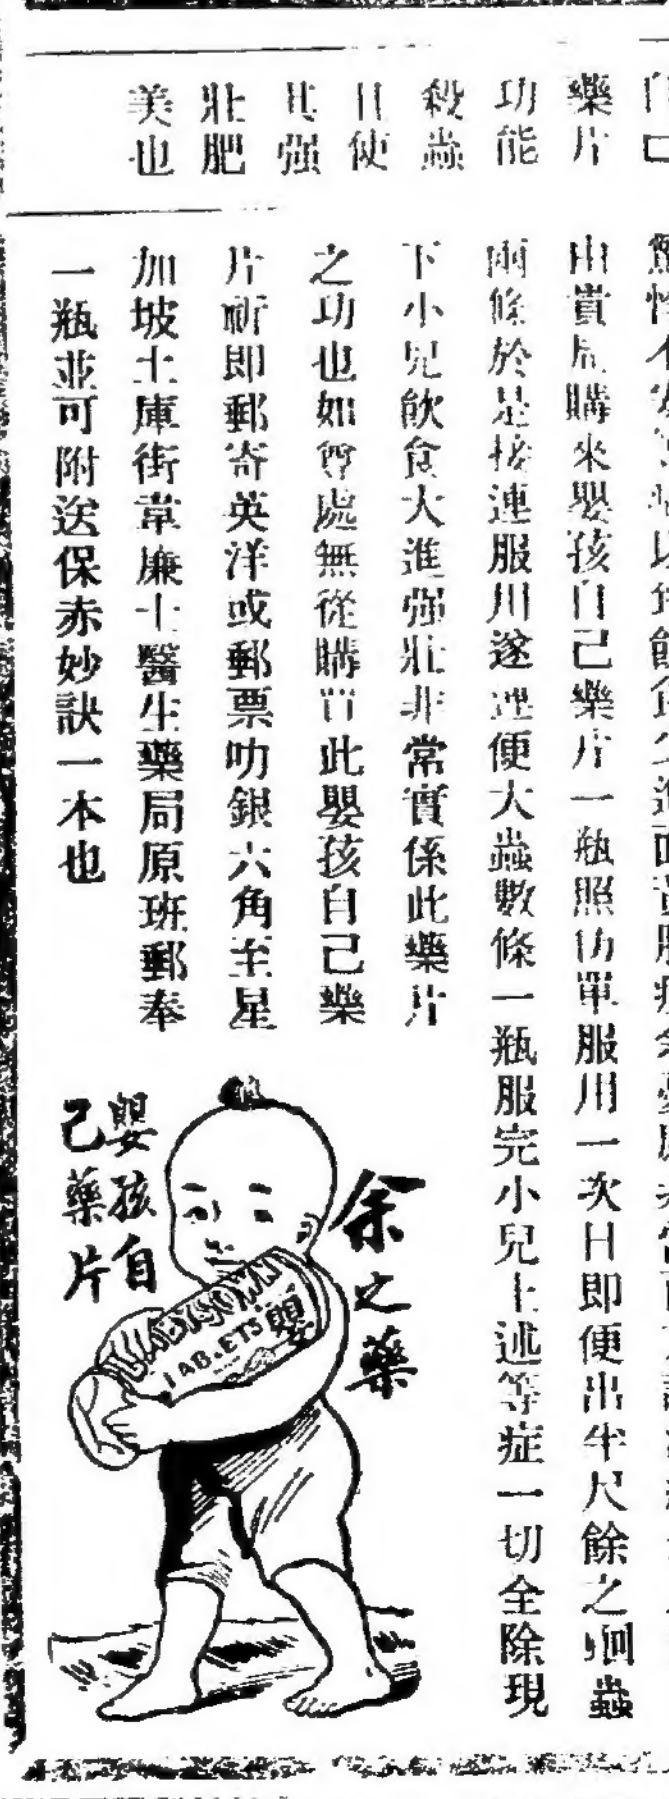 自己
藥片
功能
殺蟲
且使
其强
壯肥
美也
由貴局購來嬰孩自己藥片一瓶照仿單服用一次日即便出半尺餘之蛔蟲
兩條於是接連服用遂連便大蟲數條一瓶服完小兒上述等症一切全除現
下小兒飲食大進强壯非常實係此藥片
之功也如尊處無從購買此嬰孩自己藥
片祈即郵寄英洋或郵票叻銀六角至星
加坡土庫街韋廉士醫生藥局原班郵奉
一瓶並可附送保赤妙訣一本也
余之藥
BABY'S OWN
TABLETS
嬰
嬰孩自
己藥片